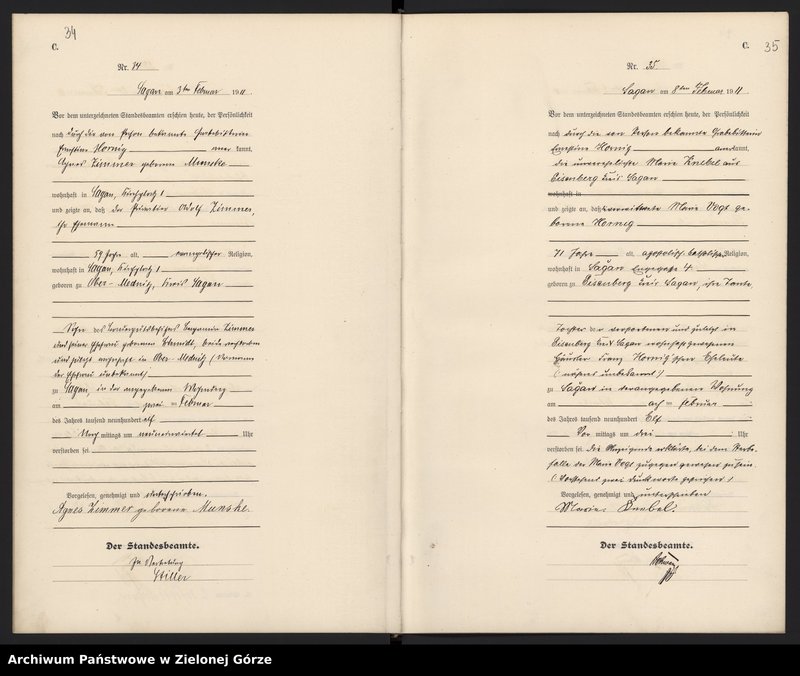 34
C.
Nr. 34
Sagan am 3ten Februar 1911.
Vor dem unterzeichneten Standesbeamten erschien heute, der Persönlichkeit
nach durch die von Person bekannte
Ernestine Hornig kannt,
Agnes Zimmer geborene Munske
wohnhaft in Sagan, Kirchplatz 1
und zeigte an, daß der Privatier Adolf Zimmer,
ihr Ehemann
59 Jahre alt, evangelischer Religion,
wohnhaft in Sagan, Kirchplatz 1
geboren zu Ober-Mednitz, Kreis Sagan
Sohn des Benjamin Zimmer
und seiner Ehefrau geborenen Schmidt, beide verstorben
und zuletzt wohnhaft in Ober-Mednitz (Vorname
der Ehefrau unbekannt)
zu Sagan, in der angegebenen Wohnung
am zwei ten Februar
des Jahres tausend neunhundert elf
Nachmittags um Uhr
verstorben sei.
Vorgelesen, genehmigt und unterschrieben.
Agnes Zimmer geborene Munske.
Der Standesbeamte.
In Vertretung
Stiller
C.
35
Nr. 35
Sagan am 8ten Februar 1911
Vor dem unterzeichneten Standesbeamten erschien heute, der Persönlichkeit
nach durch die von Person bekannte
Ernestine Hornig kannt,
die unverehelichte Marie Knebel aus
Eisenberg Kreis Sagan
wohnhaft in
und zeigte an, daß verwitwete Marie Vogt ge-
borene Hornig
71 Jahre alt, apostolisch-katholischer Religion,
wohnhaft in Sagan 4
geboren zu Eisenberg Kreis Sagan, ihre Tante
Tochter der verstorbenen und zuletzt in
Eisenberg Kreis Sagan wohnhaft gewesenen
Häusler Franz Hornig'schen Eheleute
(näheres unbekannt)
zu Sagan in der angegebenen Wohnung
am acht ten Februar
des Jahres tausend neunhundert Elf
Vor mittags um drei Uhr
verstorben sei. Die Anzeigende erklärte, bei dem Sterbe-
falle der Marie Vogt zugegen gewesen zu sein.
(Vorstehend zwei Druckworte gestrichen)
Vorgelesen, genehmigt und unterschrieben
Marie Knebel.
Der Standesbeamte.
Archiwum Państwowe w Zielonej Górze